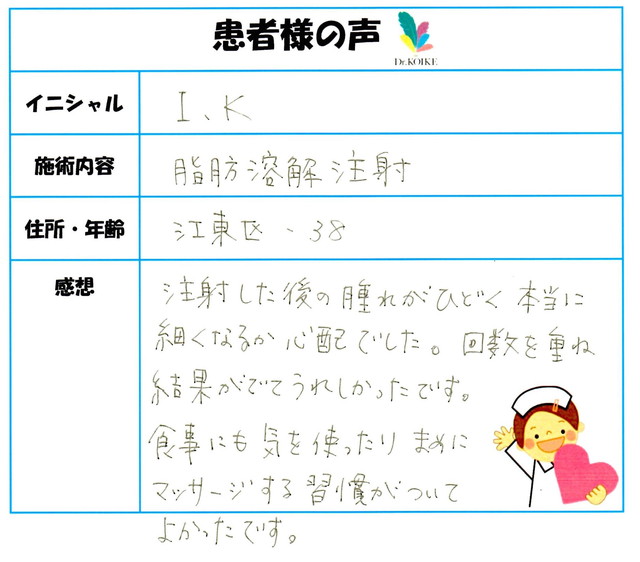 患者様の声
Dr.KOIKE
イニシャル
I、K
施術内容
脂肪溶解注射
住所・年齢
江東区、38
感想
注射した後の腫れがひどく本当に
細くなるか心配でした。回数を重ね
結果がでてうれしかったです。
食事にも気を使ったりまめに
マッサージする習慣がついて
よかったです。